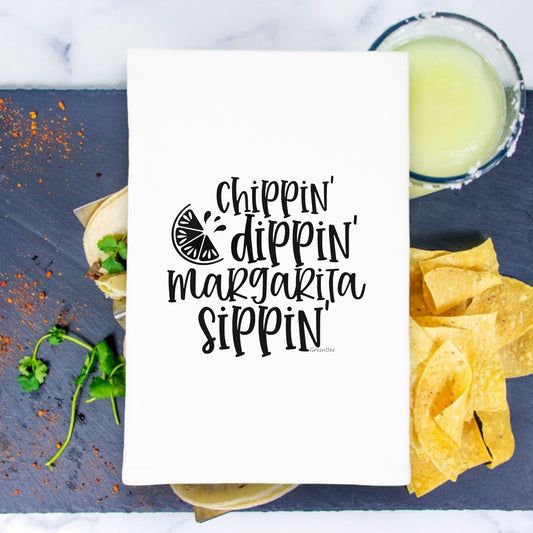 chippin'
dippin'
margarita
sippin'
GreenBee